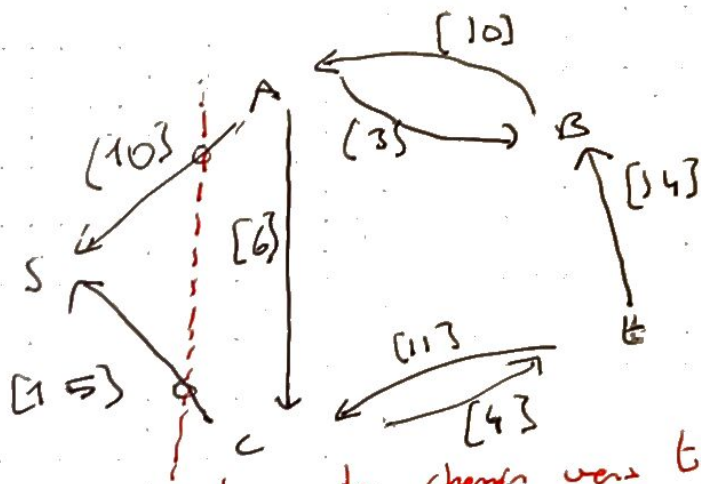 [10]
A
[10]
[3]
B
[14]
[6]
S
t
[11]
[15]
[4]
C
chemin vers t